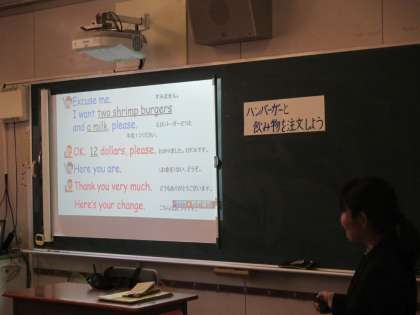 Excuse me. すみません。
I want two shrimp burgers
and a milk, please.
OK. 12 dollars, please.
Here you are.
Thank you very much. どうもありがとうございます。
Here's your change.
ハンバーガーと
飲み物を注文しよう